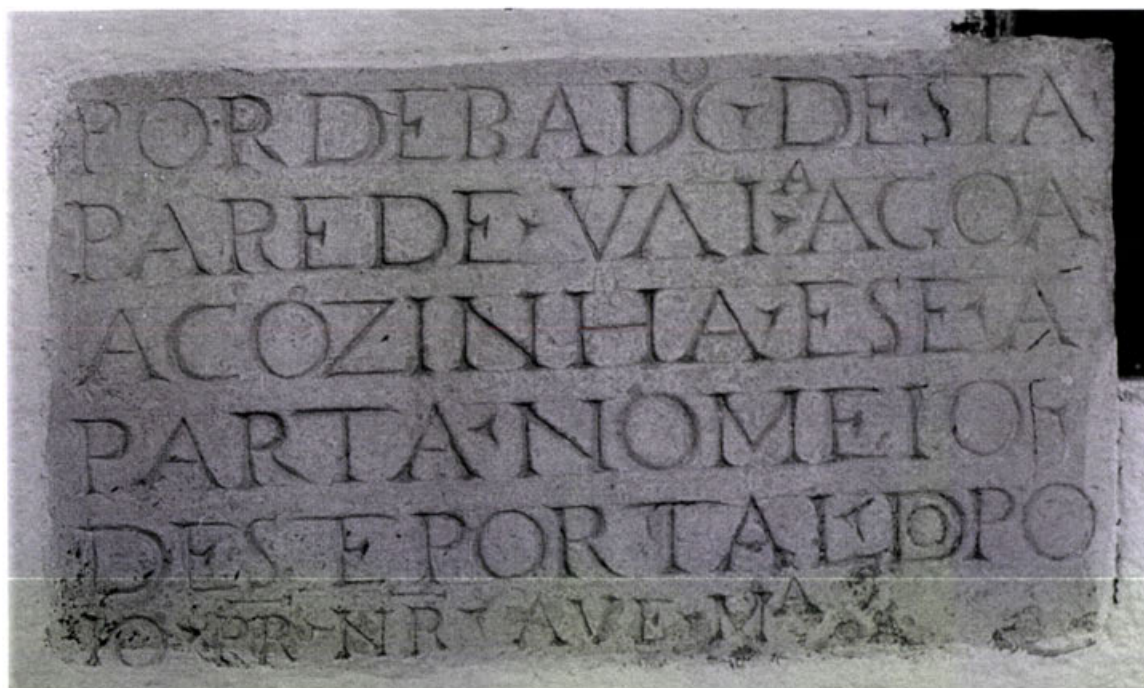 POR DEBADO DESTA
PAREDE · VAI A AGOA
A COZINHA · E SE A
PARTA · NO MEIO
DESE PORTAL DO PO
IO · PR · NR · AVE · Mᴬ